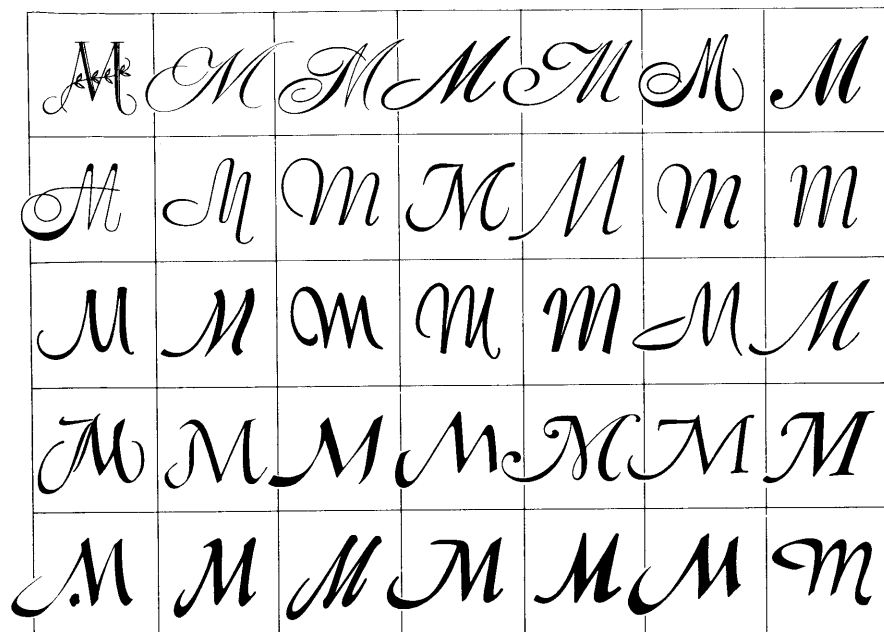 M M M M M M M
M M M M M M M
M M M M M M M
M M M M M M M
M M M M M M M